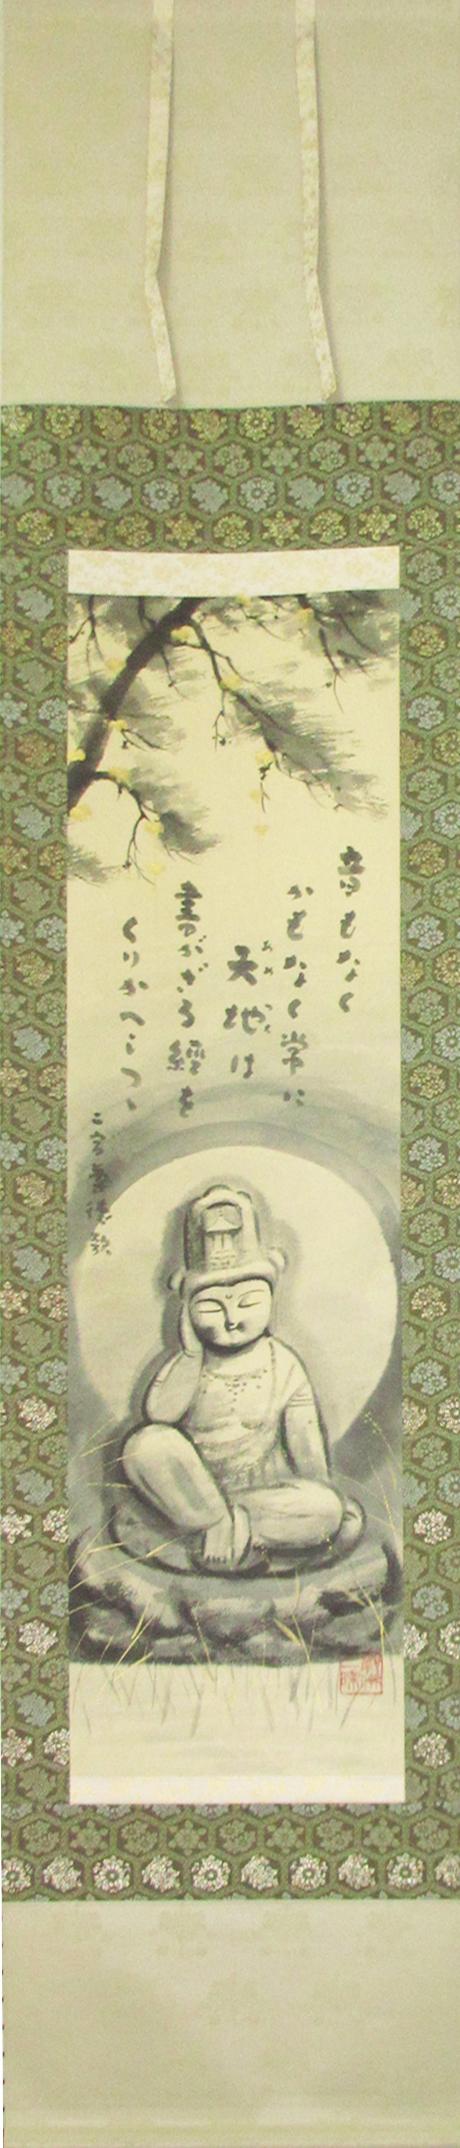 音もなく
かもなく常に
天地は
書かざる經を
くりかへしつゝ
二宮尊徳歌